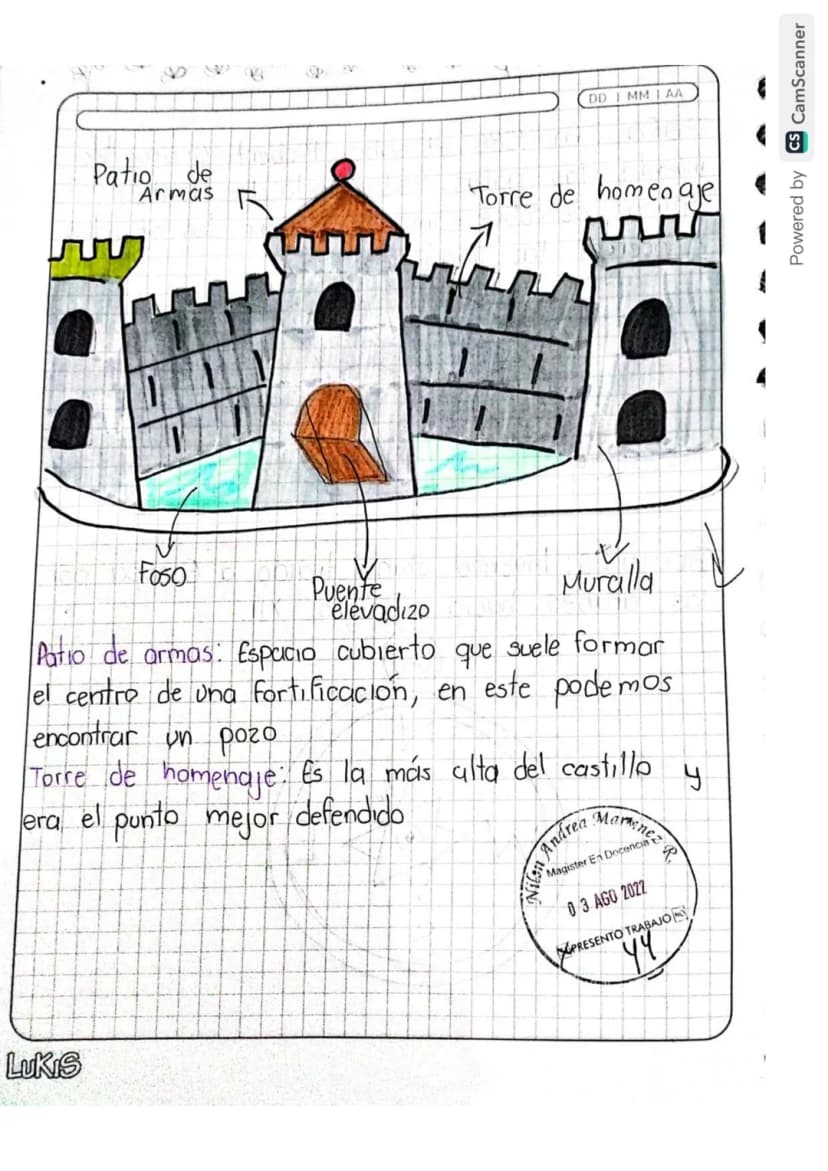 DD | MM | AA
Patio de
Armas
Torre de homenaje
Foso
Puente
elevadizo
Muralla
Patio de armas: Espacio cubierto que suele formar
el centro de una fortificación, en este podemos
encontrar un pozo
Torre de homenaje: Es la más alta del castillo y
era el punto mejor defendido
Andrea R.
Magister En Docencia
03 AGO 2022
PRESENTO TRABAJO NO
44
LUKIS
Powered by CS CamScanner